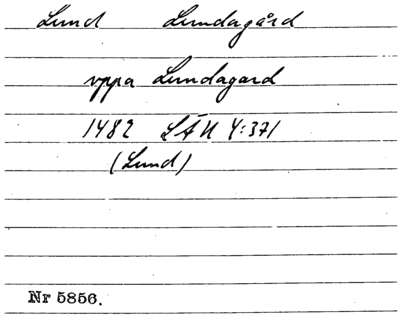 Lund Lundagård
vppa Lundagard
1482 LÄU 4:371
(Lund)
Nr 5856.